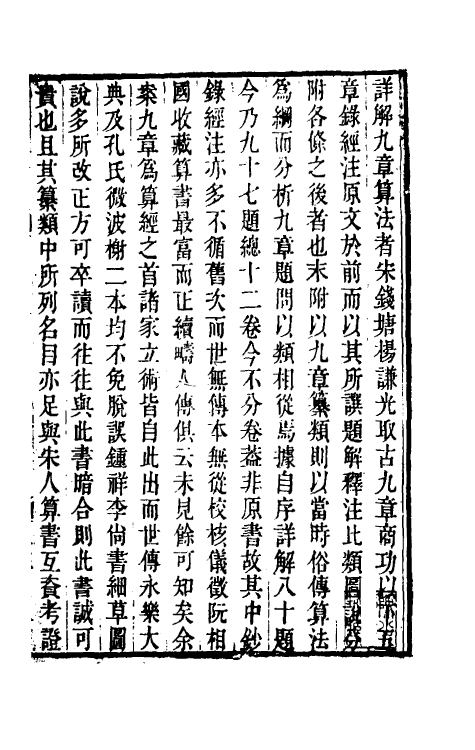 詳解九章算法者宋錢塘楊謙光取古九章商功以五
章錄經注原文於前而以其所譔題解釋注比類圖說分
附各條之後者也末附以九章纂類則以當時俗傳算法
為綱而分析九章題問以類相從焉據自序詳解八十題
今乃九十七題總十二卷今不分卷葢非原書故其中鈔
錄經注亦多不循舊次而世無傳本無從校核儀徵阮相
國收藏算書最富而正續疇人傳俱云未見餘可知矣余
案九章為算經之首諸家立術皆自此出而世傳永樂大
典及孔氏微波榭二本均不免脫誤鍾祥李尙書細草圖
說多所改正方可卒讀而往往與此書暗合則此書誠可
貴也且其纂類中所列名目亦足與宋人算書互資考證